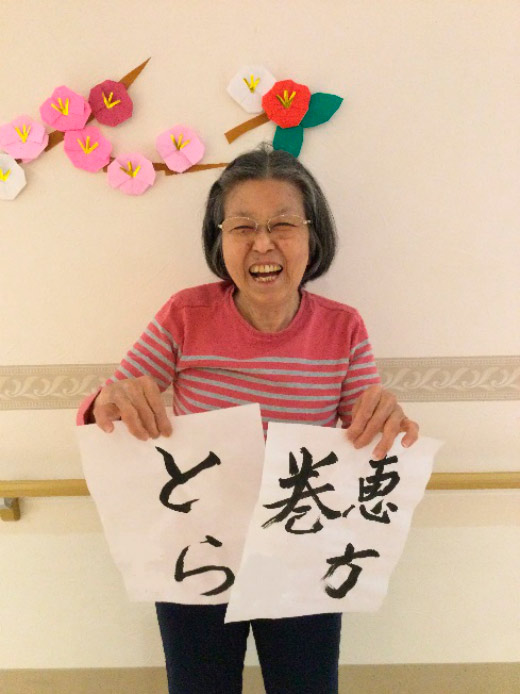 恵方
巻
とら